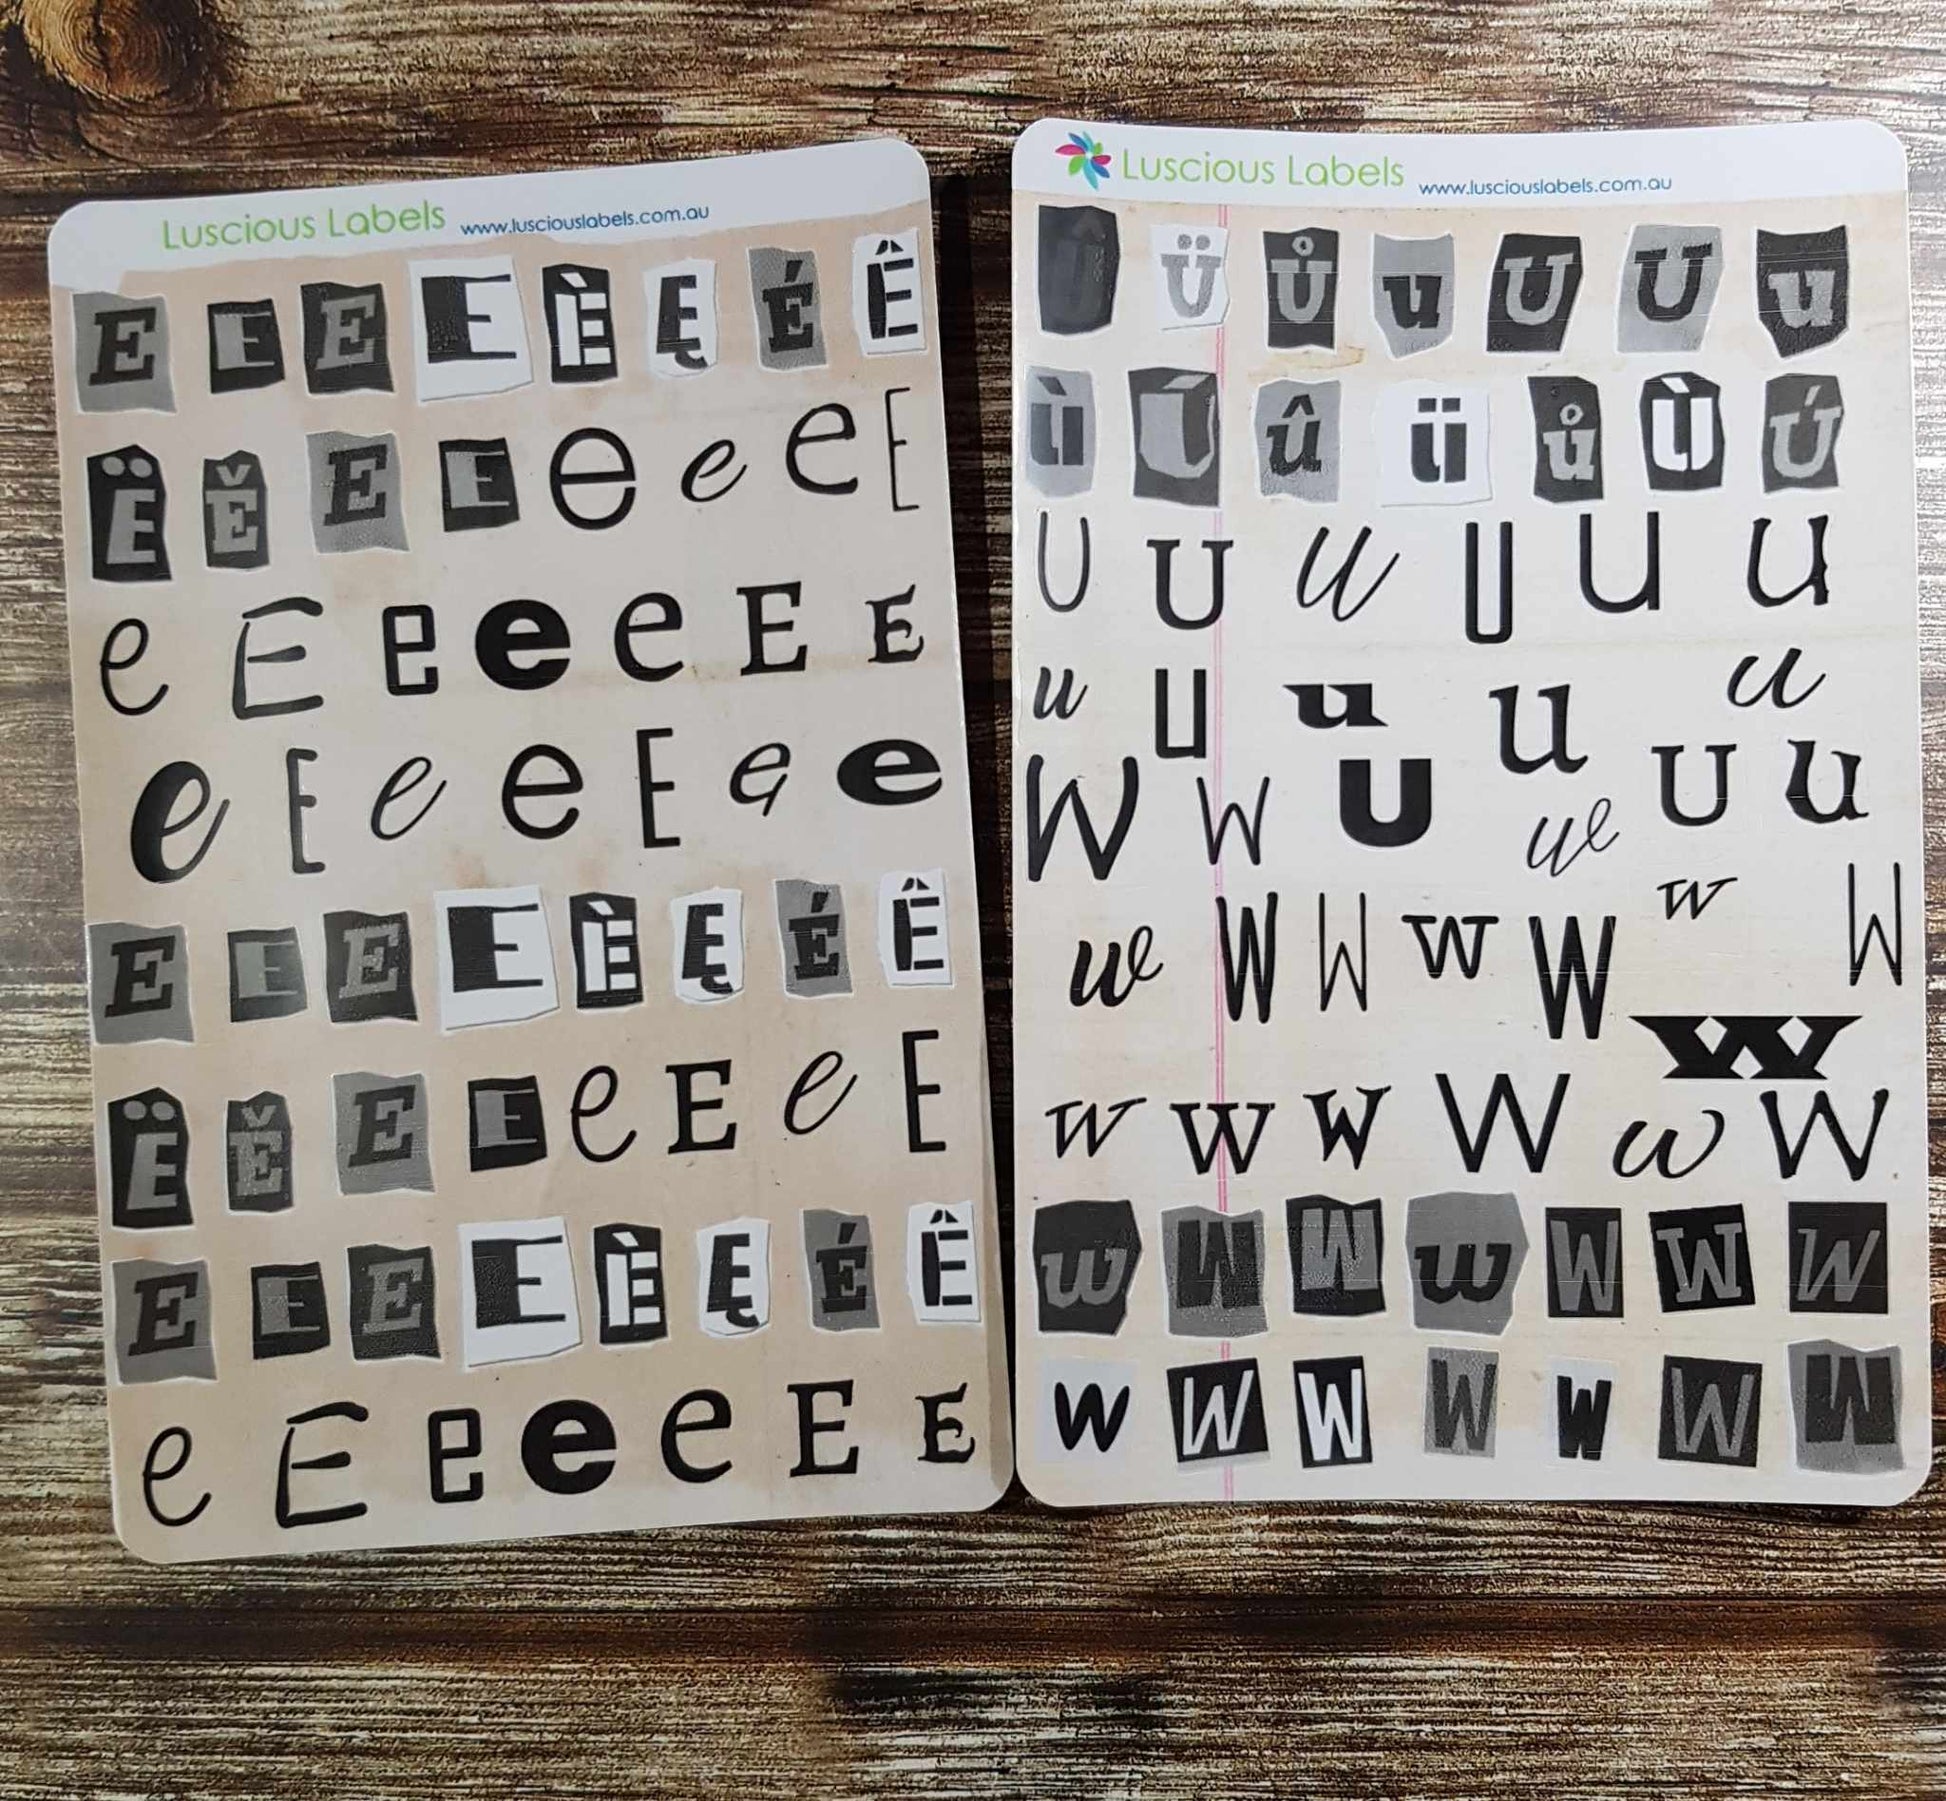 Luscious Labels www.lusciouslabels.com.au
E E E E È Ę É Ê
Ë Ě E E e e e E
e E e e e E E
e E e e E e e
E E E E È Ę É Ê
Ë Ě E E e E e E
E E E E È Ę É Ê
e E e e e E E
Luscious Labels www.lusciouslabels.com.au
Û Ü Ů u U U u
Ù Ú û ü ů Ù Ú
U U U U U U
u U u u u
W W U w U u
w W W w W w W
W
w W W W w W
w W W w W W W
w W W W W W W